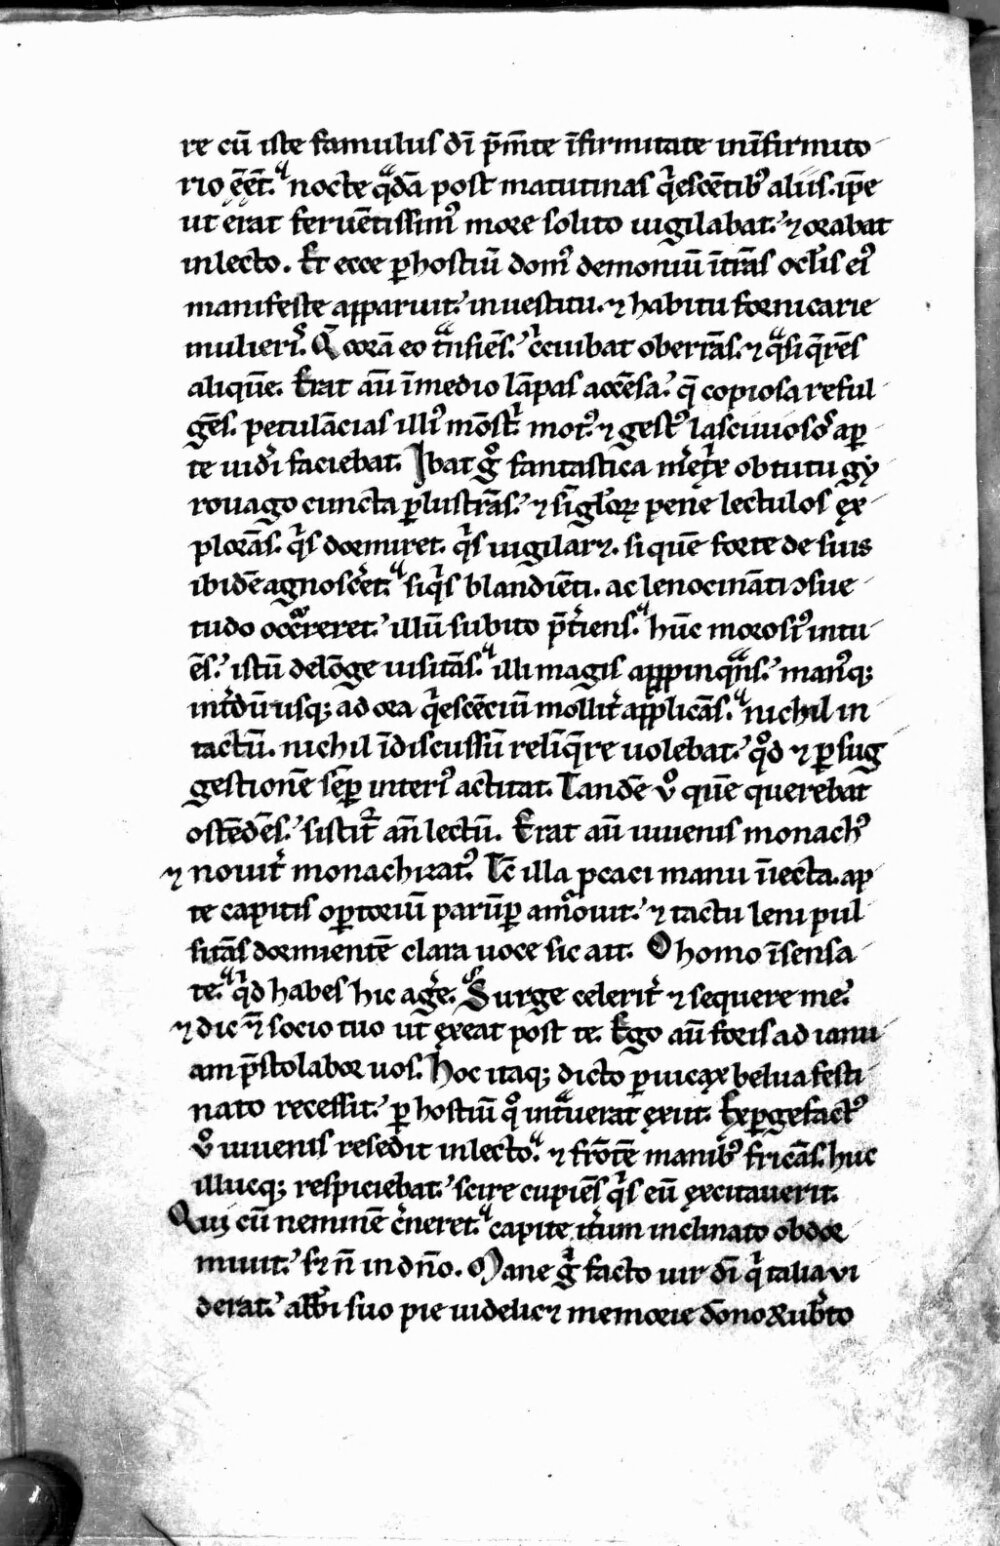 re cū iste famulus dī p̄m̄te īfirmitate inīfirmito
rio ēēt. nocte qᵃdā post matutinas qⁱescētibꝰ aliis. ip̄e
ut erat feruētissimꝰ more solito uigilabat. ⁊ orabat
in lecto. Et ecce ꝑ hostiū domꝰ demoniū ītrās oclʼis eiꝰ
manifeste apparuit. in uestitu. ⁊ habitu fornicarie
mulierꝭ. Q̄ corā eo tᵃnsiēs. cⁱcuibat oberrās. ⁊ qᵃsi q̄rēs
aliquē. Erat aū ī medio lāpas accēsa. q̄ copiosa reful
gēs. petulācias illiꝰ mōstⁱ. motꝰ ⁊ gestꝰ lasciuioso᷒ aꝑ
te uidʼi faciebat. Ibat gͦ fantastica mʼet̓x obtutu gy
rouago cuncta ꝑlustrās. ⁊ sīgloꝝ pene lectulos ex
plorās. qⁱs dormiret. qⁱs uigilarꝫ. si quē forte de suis
ibidē agnoscʼet. siqⁱs blandiēti. ac lenocināti ↄsue
tudo occʼreret. illū subito p̄tⁱiens. hūc morosiꝰ intu
ēs. istū delōge uisitās. illi magis appinqᵃns. manꝰqꝫ
intʼdū usqꝫ ad ora qⁱescēciū mollitʼ applicās. nichil in
tactū. nichil īdiscussū relīqʼre uolebat. qͦd ⁊ ꝑ sug
gestionē sēꝑ interiꝰ actitat. Tandē uͦ quē querebat
ostēdēs. sistitʼ an̄ lectū. Erat aū iuuenis monachꝰ
⁊ nouitʼ monachizatꝰ. Tc̄ illa ꝓcaci manu īiecta. aꝑ
te capitis oꝑtoriū parūꝑ amouit. ⁊ tactu leni pul
sitās dormientē clara uoce sic ait. O homo īsensa
te. qⁱd habes hic agʼe. Surge celeritʼ ⁊ sequere me.
⁊ dic ⁊̄ socio tuo ut exeat post te. Ego aū foris ad ianu
am p̄stolabor uos. Hoc itaqꝫ dicto ꝑuicax belua festi
nato recessit. ꝑ hostiū qͦ intᵃuerat exiit. Exꝑgefactꝰ
uͦ iuuenis resedit in lecto. ⁊ frōtē manibꝰ fricās. huc
illucqꝫ respiciebat. scire cupiēs qⁱs eū excitauerit.
Qui cū neminē cʼneret. capite itʼum inclinato obdor
miuit. sꝫ n̄ in dn̄o. Mane gͦ facto uir dī qⁱ talia vi
derat. abb̄i suo pie uidelicꝫ memorie dōno Rubʼto